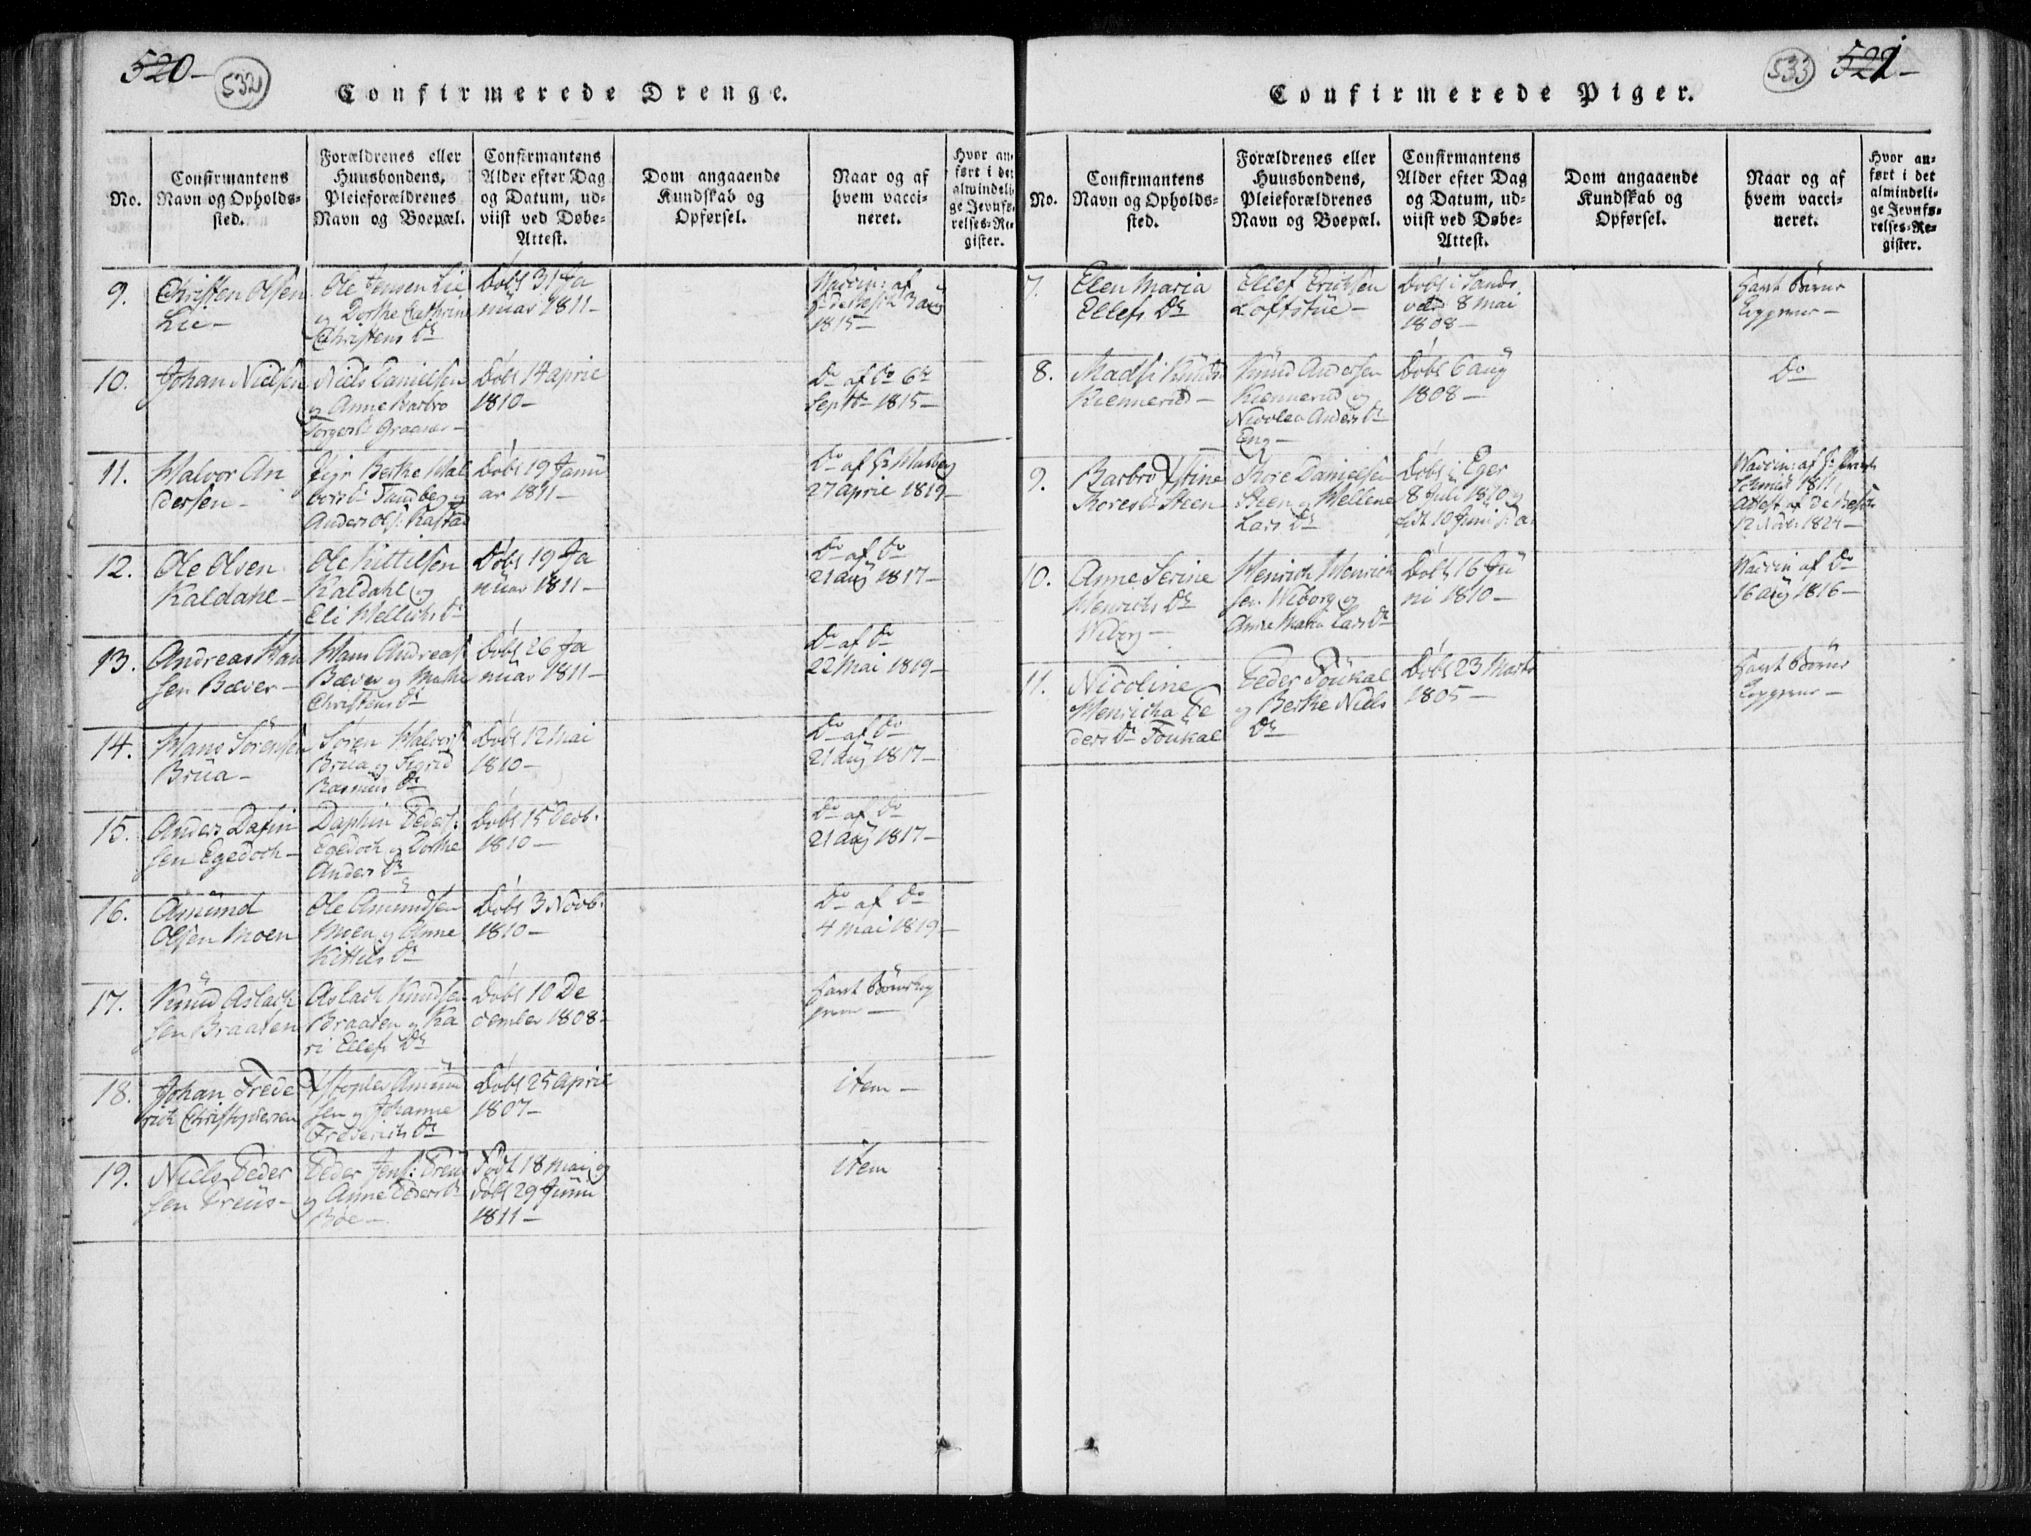 520-
532
Confirmerede Drenge.
No.
Confirmantens
Navn og Opholds-
sted.
Forældrenes eller
Huusbondens,
Pleieforældrenes
Navn og Boepæl.
Confirmantens
Alder efter Dag
og Datum, ud-
viist ved Døbe-
Attest.
Dom angaaende
Kundskab og
Opførsel.
Naar og af
hvem vacci-
neret.
Hvor an-
ført i det
almindeli-
ge Jevnfø-
relses-Re-
gister.
9.
Christen Olsen
Lie-
Ole Jensen Lie
og Dorthe Cathrine
Christens Dr
Døbt 31 Ja
nuar 1811-
Vaccin: af
3 aug
1815-
10.
Johan Nielsen
Niels Danielsen
og Anne Barbro
Graaner-
Døbt 14 April
1810-
Do af Do 6te
Septbr 1815-
11.
Halvor An
dersen-
Pige Berthe Hal
vorsdr Sundberg og
Anders Ols:
Døbt 19 Janu
ar 1811-
Do af
27 April 1819-
12.
Ole Olsen
Kaldahl-
Ole Kittilsen
Kaldahl og
Eli
Døbt 19 Ja
nuar 1811-
Do af Do
21 aug 1817-
13.
Andreas Han
sen Bæver-
Hans Andreas:
Bæver og
Christens Dr
Døbt 26 Ja
nuar 1811-
Do af Do
22 Mai 1819-
14.
Hans Sørensen
Brua-
Søren Halvors:
Brua og Sigrid
Rasmus Dr
Døbt 12 Mai
1810-
Do af Do
21 aug 1817-
15.
Anders Dafin
sen Egedoch-
Daphin Peders:
Egedoch og Dorthe
Anders Dr
Døbt 15 Decb.
1810-
Do af Do
21 aug 1817-
16.
Amund
Olsen Moen
Ole Amundsen
Moen og Anne
Kittils Dr
Døbt 3 Novb.
1810-
Do af Do
4 Mai 1819-
17.
Knud Aslach
sen Braaten
Aslach Knudsen
Braaten og Ka
ri Ellefs Dr
Døbt 10 De
cember 1808-
havt Børnekop
perne-
18.
Johan Frede
rich Christophersen
Xstopher Amund
sen og Johanne
Frederichs Dr
Døbt 25 April
1807-
item-
19.
Niels Peder
sen Preus-
Peder Jens: Preus
og Anne Peders Dr
Bøe-
Født 18 Mai og
døbt 29 Juni
1811-
item
533
521-
Confirmerede Piger.
No.
Confirmantens
Navn og Opholds-
sted.
Forældrenes eller
Huusbondens,
Pleieforældrenes
Navn og Boepæl.
Confirmantens
Alder efter Dag
og Datum, ud-
viist ved Døbe-
Attest.
Dom angaaende
Kundskab og
Opførsel.
Naar og af
hvem vacci-
neret.
Hvor an-
ført i det
almindeli-
ge Jevnfø-
relses-Re-
gister.
7.
Elen Maria
Ellefs Dr
Ellef Erichsen
Loftstue-
Døbt i Sands
8 Mai
1808-
havt Børne
kopperne-
8.
Kiennerud-
Knud Andersen
Kiennerud og
Nicolea Anders Dr
Eng-
Døbt 6 aug
1808-
Do
9.
Barbro Xstine
Thoresdr Steen
Thore Danielsen
Steen og Mellene
Lars Dr
Døbt i Eger
8 Juli 1810 og
født 10 Juni
Vaccin: af
1811
Attest af
12 Novb: 1824-
10.
Anne Serine
Henrichs Dr
Wiborg-
Henrich Henrich
sen Wiborg og
Anne Maria Lars Dr
Døbt 16 Ju
ni 1810-
Vaccin af Do
16 aug 1816-
11.
Nicoline
Henricha Pe
ders Dr Foukal
Peder Foukal
og Berthe Niels
Dr
Døbt 23 Marts
1805-
havt Børne
kopperne-